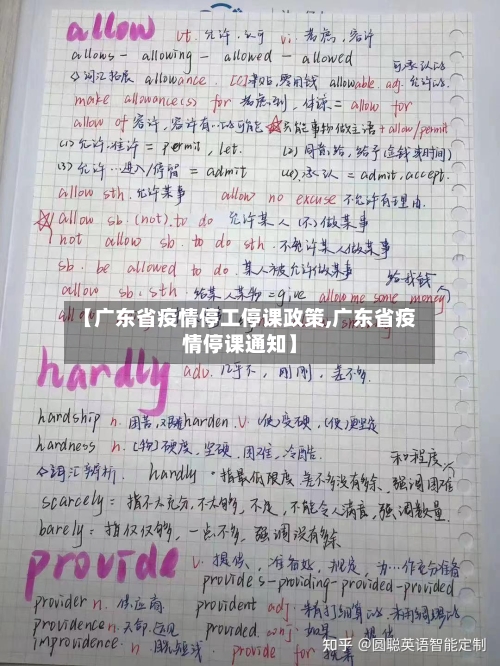 allow vt. 允许 vi. 考虑,容许
allows - allowing - allowed - allowed
词汇拓展 allowance. [C]津贴,零用钱 allowable. adj. 允许的
make allowance(s) for 考虑到,体谅 = allow for
allow of 容许,容许有…的可能 只能事物做主语 + allow/permit
(1) 允许,准许 = permit, let.
(3) 允许…进入/停留 = admit (4) 承认 = admit, accept.
allow sth. 允许某事 allow no excuse 不允许有理由.
allow sb. (not) to do 允许某人(不)做某事
not allow sb. to do sth. 不允许某人做某事
sb. be allowed to do. 某人被允许做某事 给我钱
allow sb. sth 给某人某物 = give allow me some money
【广东省疫情停工停课政策,广东省疫
情停课通知】
hardly adv. 几乎不,刚刚,差不多.
hardship n. 困苦, harden. v. (使)变硬,(使)
hardness n. [物]硬度,坚硬,困难,冷酷.
和程度
词汇辨析. hardly · 指最低限度,差不多没有多余,强调困难
scarcely: 指不太充分,不太够,不足,不能令人满意,强调数量.
barely: 指仅仅够,一点不多,强调没有多余
provide v. 提供,规定,为…作充分准备
provides - providing - provided - provided
provider n. 供应商 provident adj.
providence n. provided. conj.
improvidence n. provide for
知乎 @圆聪英语智能定制